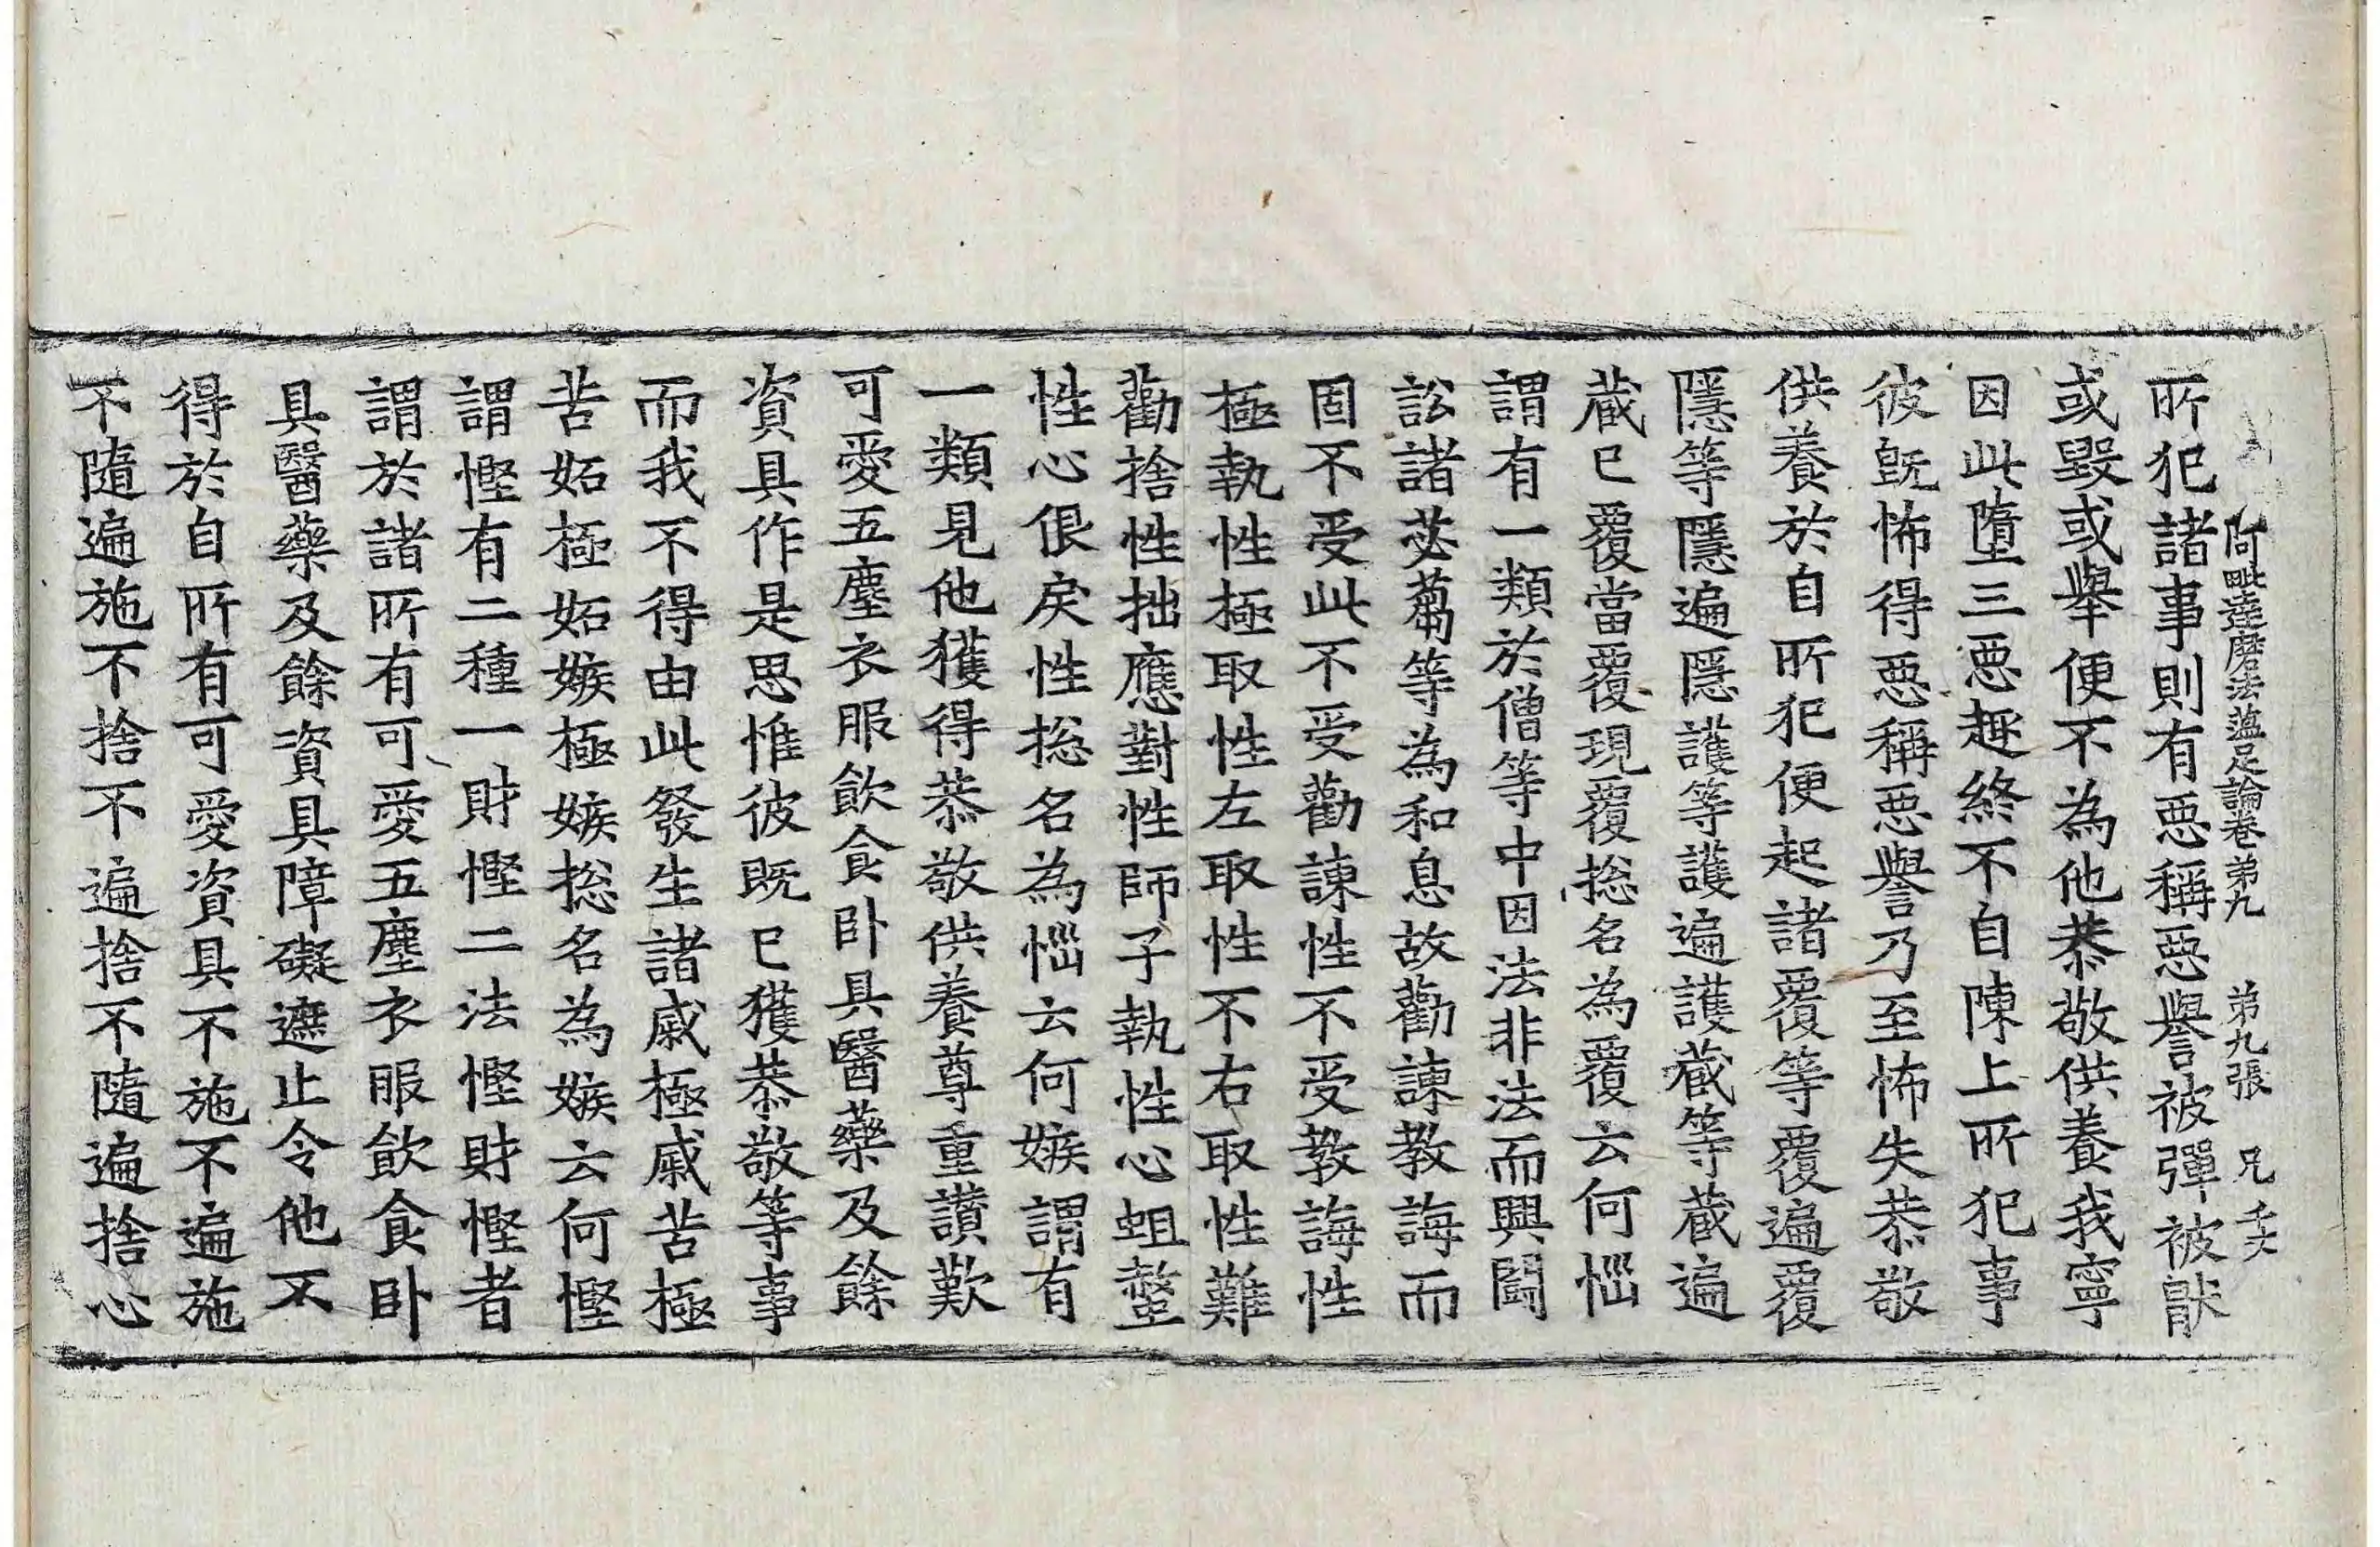 阿毗達磨法蘊足論卷弟九　弟九張　兄
所犯諸事則有惡稱惡譽被彈被猒
或毀或舉便不為他恭敬供養我寧
因此墮三惡趣終不自陳上所犯事
彼旣怖得惡稱惡譽乃至怖失恭敬
供養於自所犯便起諸覆等覆遍覆
隱等隱遍隱護等護遍護藏等藏遍
藏已覆當覆現覆捴名為覆云何惱
謂有一類於僧等中因法非法而興鬪
訟諸苾蒭等為和息故勸諫教誨而
固不受此不受勸諫性不受教誨性
極執性極取性左取性不右取性難
勸捨性拙應對性師子執性心蛆螫
性心佷戾性捴名為惱云何嫉謂有
一類見他獲得恭敬供養尊重讚歎
可愛五塵衣服飲食卧具醫藥及餘
資具作是思惟彼既已獲恭敬等事
而我不得由此發生諸戚極戚苦極
苦妬極妬嫉極嫉捴名為嫉云何慳
謂慳有二種一財慳二法慳財慳者
謂於諸所有可愛五塵衣服飲食卧
具醫藥及餘資具障礙遮止令他不
得於自所有可愛資具不施不遍施
不隨遍施不捨不遍捨不隨遍捨心